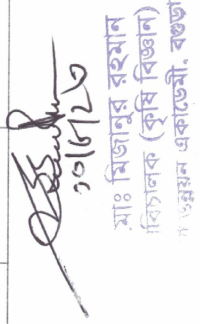 ১০/৬/২৩
মোঃ মিজানুর রহমান
রিচালক (কৃষি বিজ্ঞান)
উন্নয়ন একাডেমী, বগুড়া